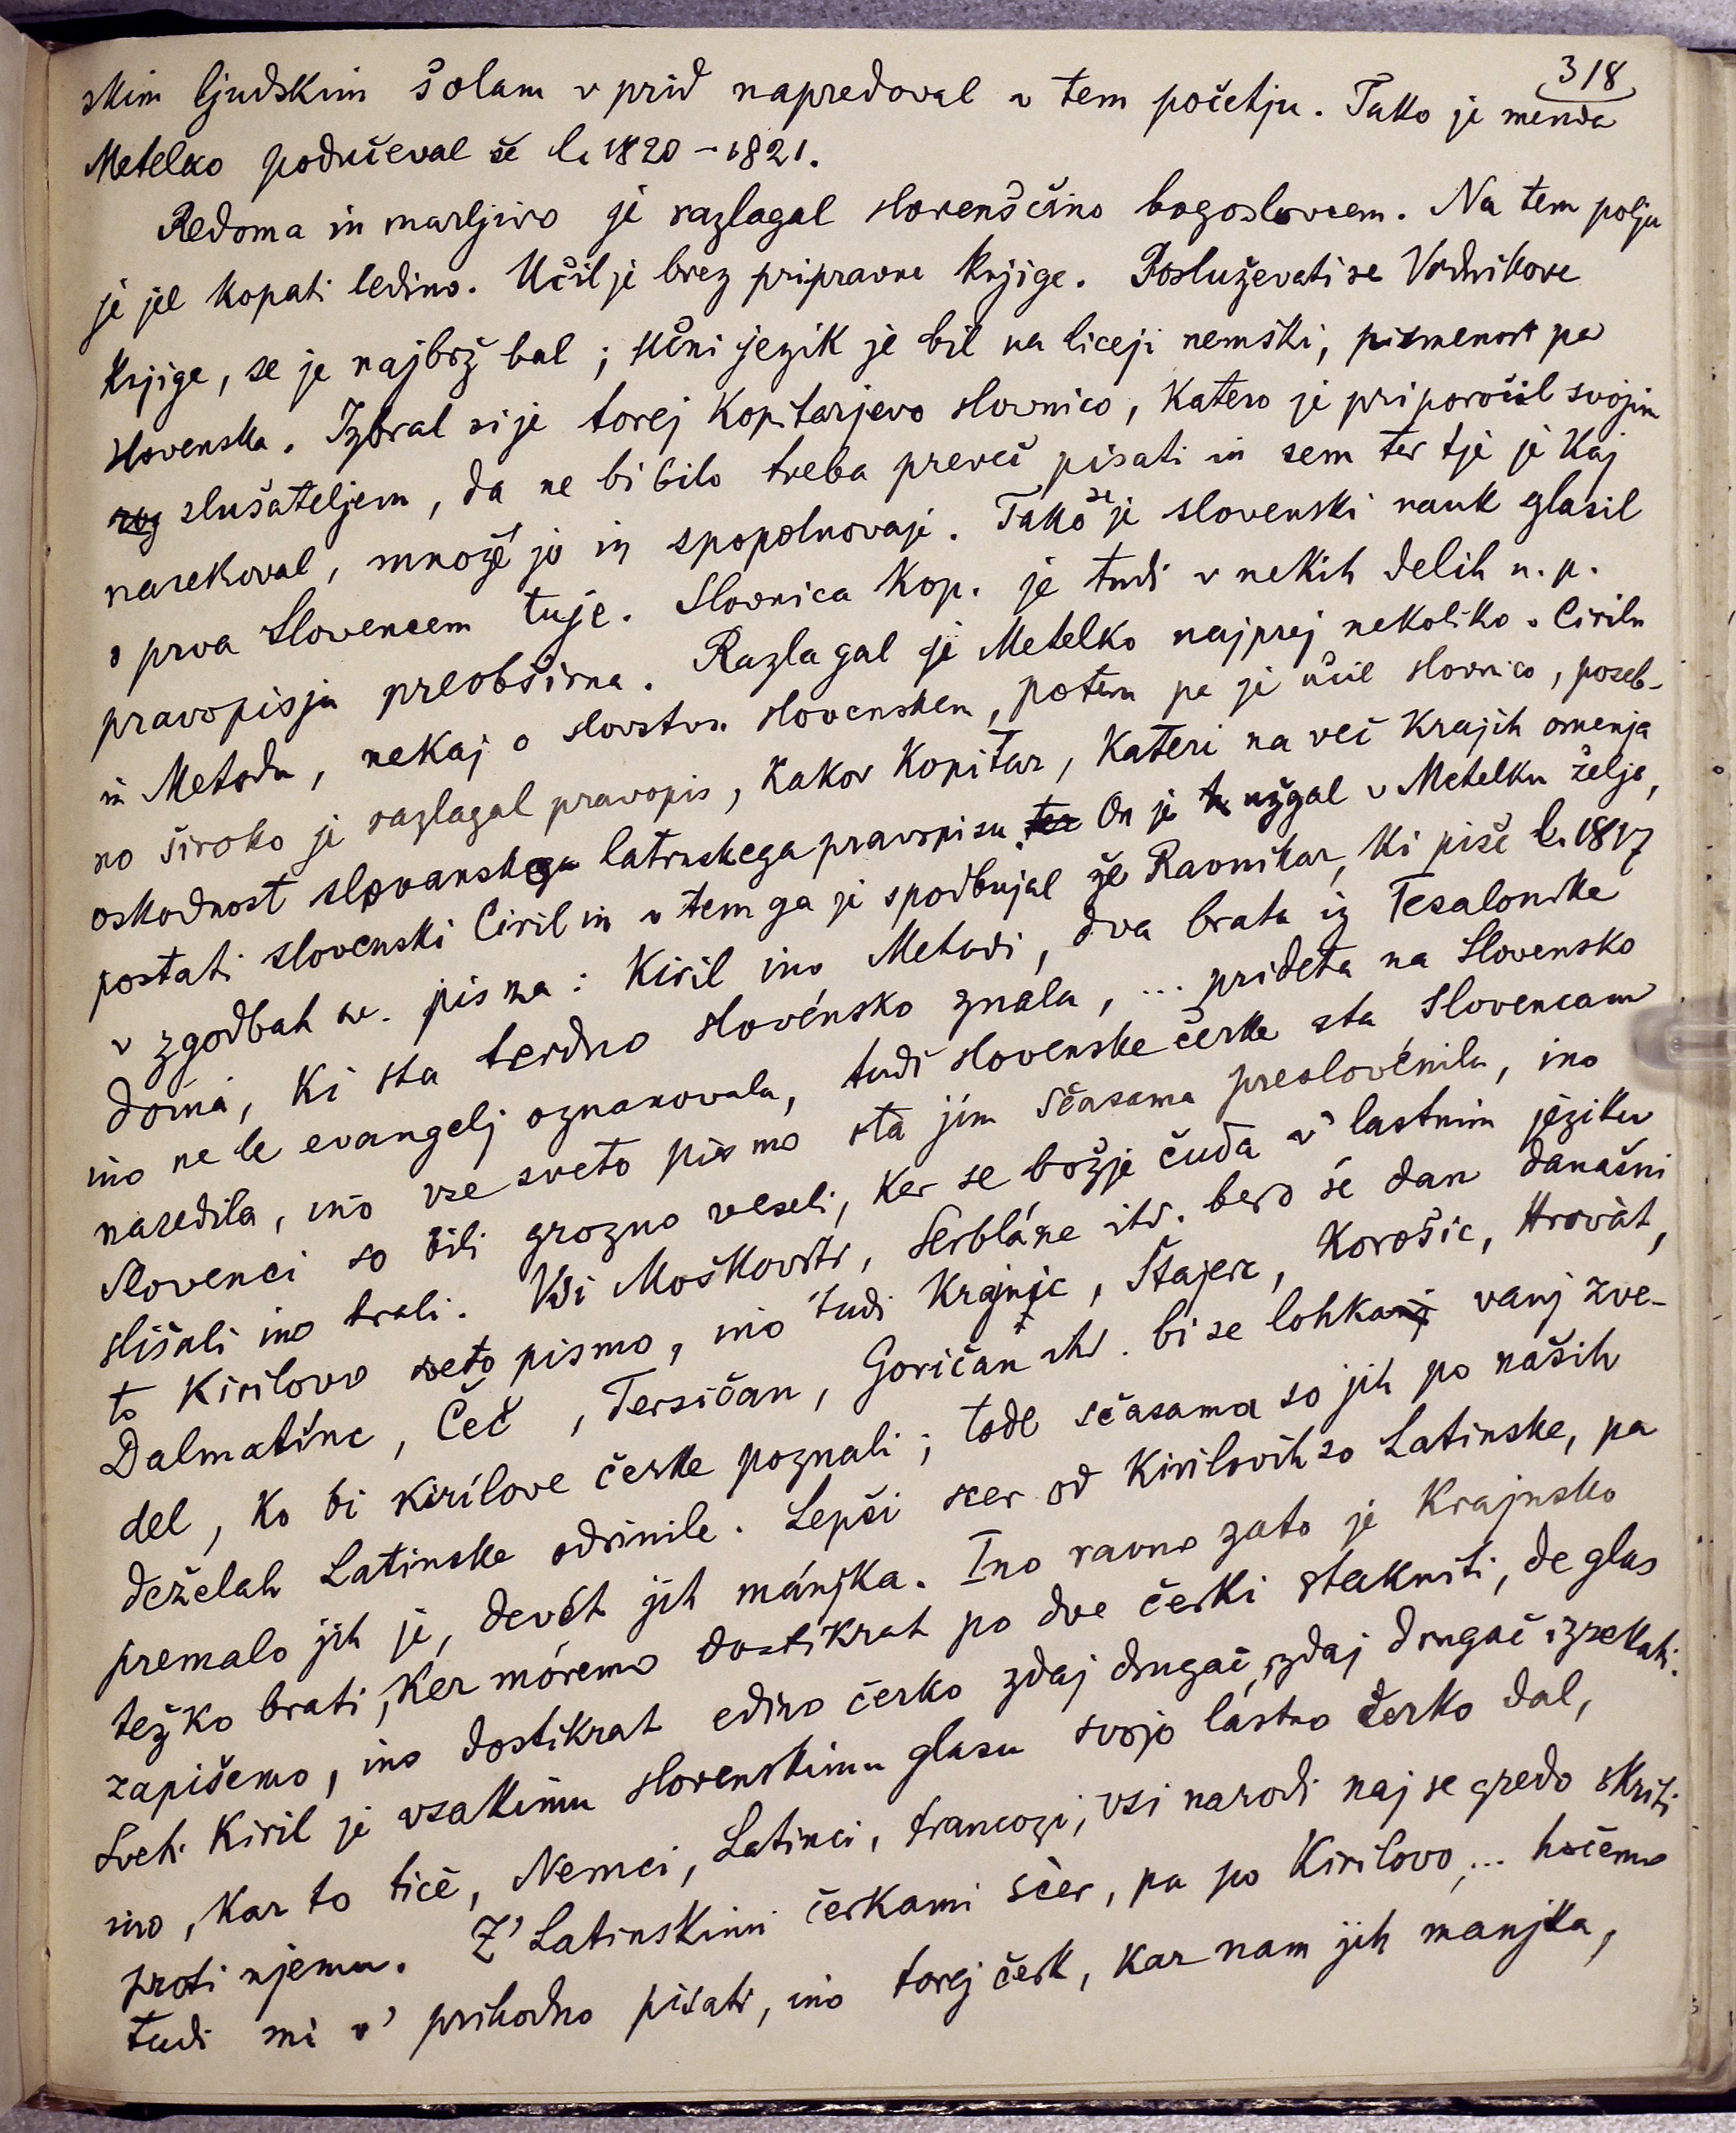 318
skim ljudskim šolam v prid napredoval v tem početju. Tako je menda
Metelko podučeval še l. 1820–1821.
Redoma in marljivo je razlagal slovenščino bogoslovcem. Na tem polju
je jel kopati ledino. Učil je brez pripravne knjige. Posluževati se Vodnikove
knjige, se je najbrž bal; učni jezik je bil na liceji nemški, pismenost pa
slovenska. Izbral si je torej Kopitarjevo slovnico, katero je priporočil svojim
slušateljem, da ne bi bilo treba preveč pisati in sem ter tje je kaj
narekoval, množé jo in spopolnovaje. Tako se je slovenski nauk glasil
s prva Slovencem tuje. Slovnica Kop. je tudi v nekih delih n. p.
pravopisju preobširna. Razlagal je Metelko najprej nekoliko o Cirilu
in Metodu, nekaj o slovstvu slovenskem, potem pa je učil slovnico, poseb-
no široko je razlagal pravopis, kakor Kopitar, kateri na več krajih omenja
oskodnost slovanskega latinskega pravopisu. On je užgal v Metelku željo,
postati slovenski Ciril in v tem ga je spodbujal že Ravnikar, ki piše l. 1817
v zgodbah sv. pisma: Kiril ino Metudi, dva brata iz Tesalonike
domá, ki sta terdno slovénsko znala, ... prideta na Slovensko
ino ne le evangelj oznanovala, tudi slovenske čerke sta Slovencam
naredila, ino vse sveto pismo sta jim sčasama preslovénila, ino
Slovenci so bili grozno veseli, ker se božje čuda v' lastnim jeziku
slišali ino brali. Vsi Moškovitr, Serbláne itd. bero še dan današni
to Kirilovo sveto pismo, ino tudi Krajnic, Štajerc, Korošic, Hrovàt,
Dalmatinc, Čeč, Tersičan, Goričan itd. bi se lohka vanj zve-
del, ko bi kirílove čerke poznali; tode sčasama so jih po naših
deželah Latinske odrinile. Lepši scer od Kirilovih so Latinske, pa
premalo jih je, devét jih mánjka. Ino ravno zato je Krajnsko
težko brati, ker móremo dostikrat po dve čerki stakniti, de glas
zapišemo, ino dostikrat edino čerko zdaj drugač, zdaj drugač izrekati.
Sveti Kiril je vsakimu slovenskimu glasu svojo lástno čerko dal,
ino, kar to tičè, Nemci, Latinci, francozi, vsi narodi naj se gredo skriti
proti njemu. Z' Latinskimi čerkami scèr, pa po Kirilovo, ... hočemo
tudi mi v' prihodno pisati, ino torej čerk, kar nam jih manjka,